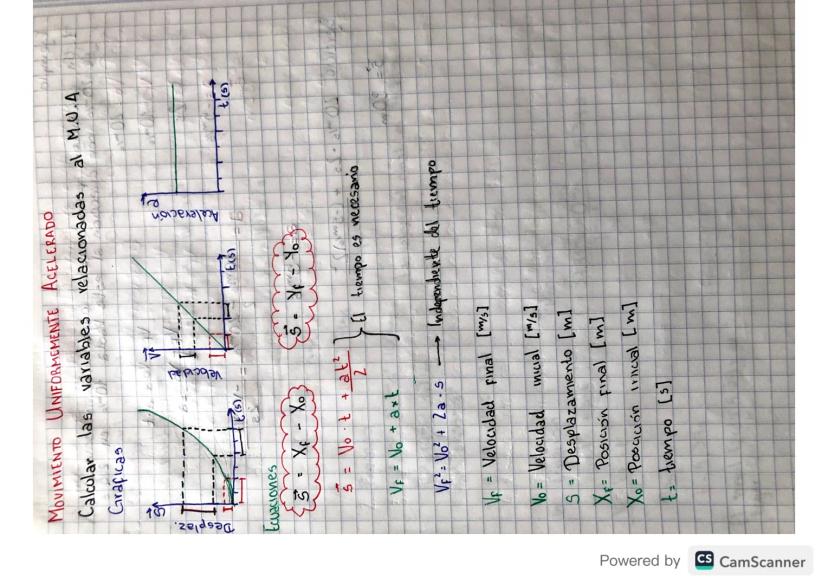 MOVIMIENTO UNIFORMEMENTE ACELERADO
Calcular las variables relacionadas al M.U.A
Gráficas
Desplaz.
S
t(s)
Velocidad
V
t(s)
Aceleración
a
t(s)
Ecuaciones
S = Xf - Xo
S = Yf - Yo
S = Vo · t + at²/2
El tiempo es necesario
Vf = Vo + a×t
Vf² = Vo² + 2a · s → Independiente del tiempo
Vf = Velocidad final [m/s]
Vo = Velocidad inicial [m/s]
S = Desplazamiento [m]
Xf = Posición final [m]
Xo = Posición inicial [m]
t = tiempo [s]
Powered by CS CamScanner